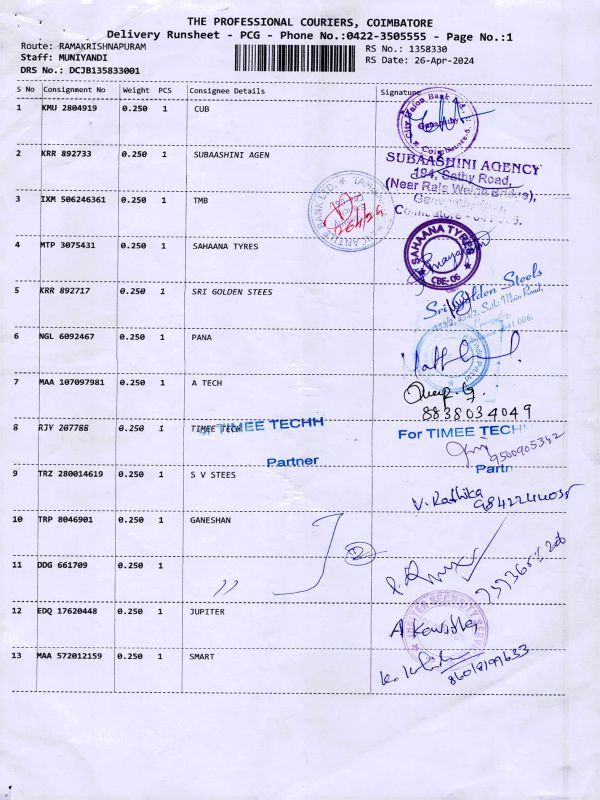 THE PROFESSIONAL COURIERS, COIMBATORE
Delivery Runsheet - PCG - Phone No.:0422-3505555 - Page No.:1
Route: RAMAKRISHNAPURAM
RS No.: 1358330
Staff: MUNIYANDI
RS Date: 26-Apr-2024
DRS No.: DCJB135833001
S No Consignment No Weight PCS Consignee Details Signature
1 KMU 2804919 0.250 1 CUB
2 KRR 892733 0.250 1 SUBAASHINI AGEN
SUBAASHINI AGENCY
194, Sathy Road,
3 IXM 506246361 0.250 1 TMB
4 MTP 3075431 0.250 1 SAHAANA TYRES
SAHAANA TYRES
CBE-06
5 KRR 892717 0.250 1 SRI GOLDEN STEES
Sri Golden Steels
6 NGL 6092467 0.250 1 PANA
7 MAA 107097981 0.250 1 A TECH
8838034049
8 RJY 207788 0.250 1 TIMEE TECH
TIMEE TECHH
Partner
For TIMEE TECH
9500905342
Partn
9 TRZ 280014619 0.250 1 S V STEES
V. Rathika
10 TRP 8046901 0.250 1 GANESHAN
11 DDG 661709 0.250 1
12 EDQ 17620448 0.250 1 JUPITER
13 MAA 572012159 0.250 1 SMART